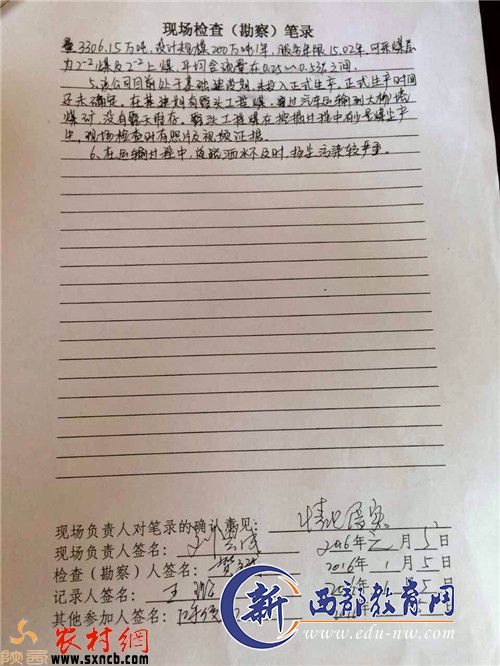 现场检查（勘察）笔录
量3306.15万吨，设计规模200万吨/年，服务年限15.02年，可采煤层
为2⁻²煤及2⁻²上煤，平均含硫量在0.25～0.53%之间。
5、该公司目前处于基础建设期，未投入正式生产，正式生产时间
还未确定。在基建期有 工程煤，通过汽车运输到大柳塔
煤矿，没有露天储存。 工程煤在挖掘过程中有少量煤尘产
生，现场检查时有照片及视频证据。
6、在运输过程中，道路洒水不及时，扬尘污染较严重。
现场负责人对笔录的确认意见： 情况属实
现场负责人签名： 2016年 月5日
检查（勘察）人签名： 2016年1月5日
记录人签名： 王 年 月5日
其他参加人签名：
陕西 农村網
www.sxncb.com
新 西部教育网
www.edu-nw.com